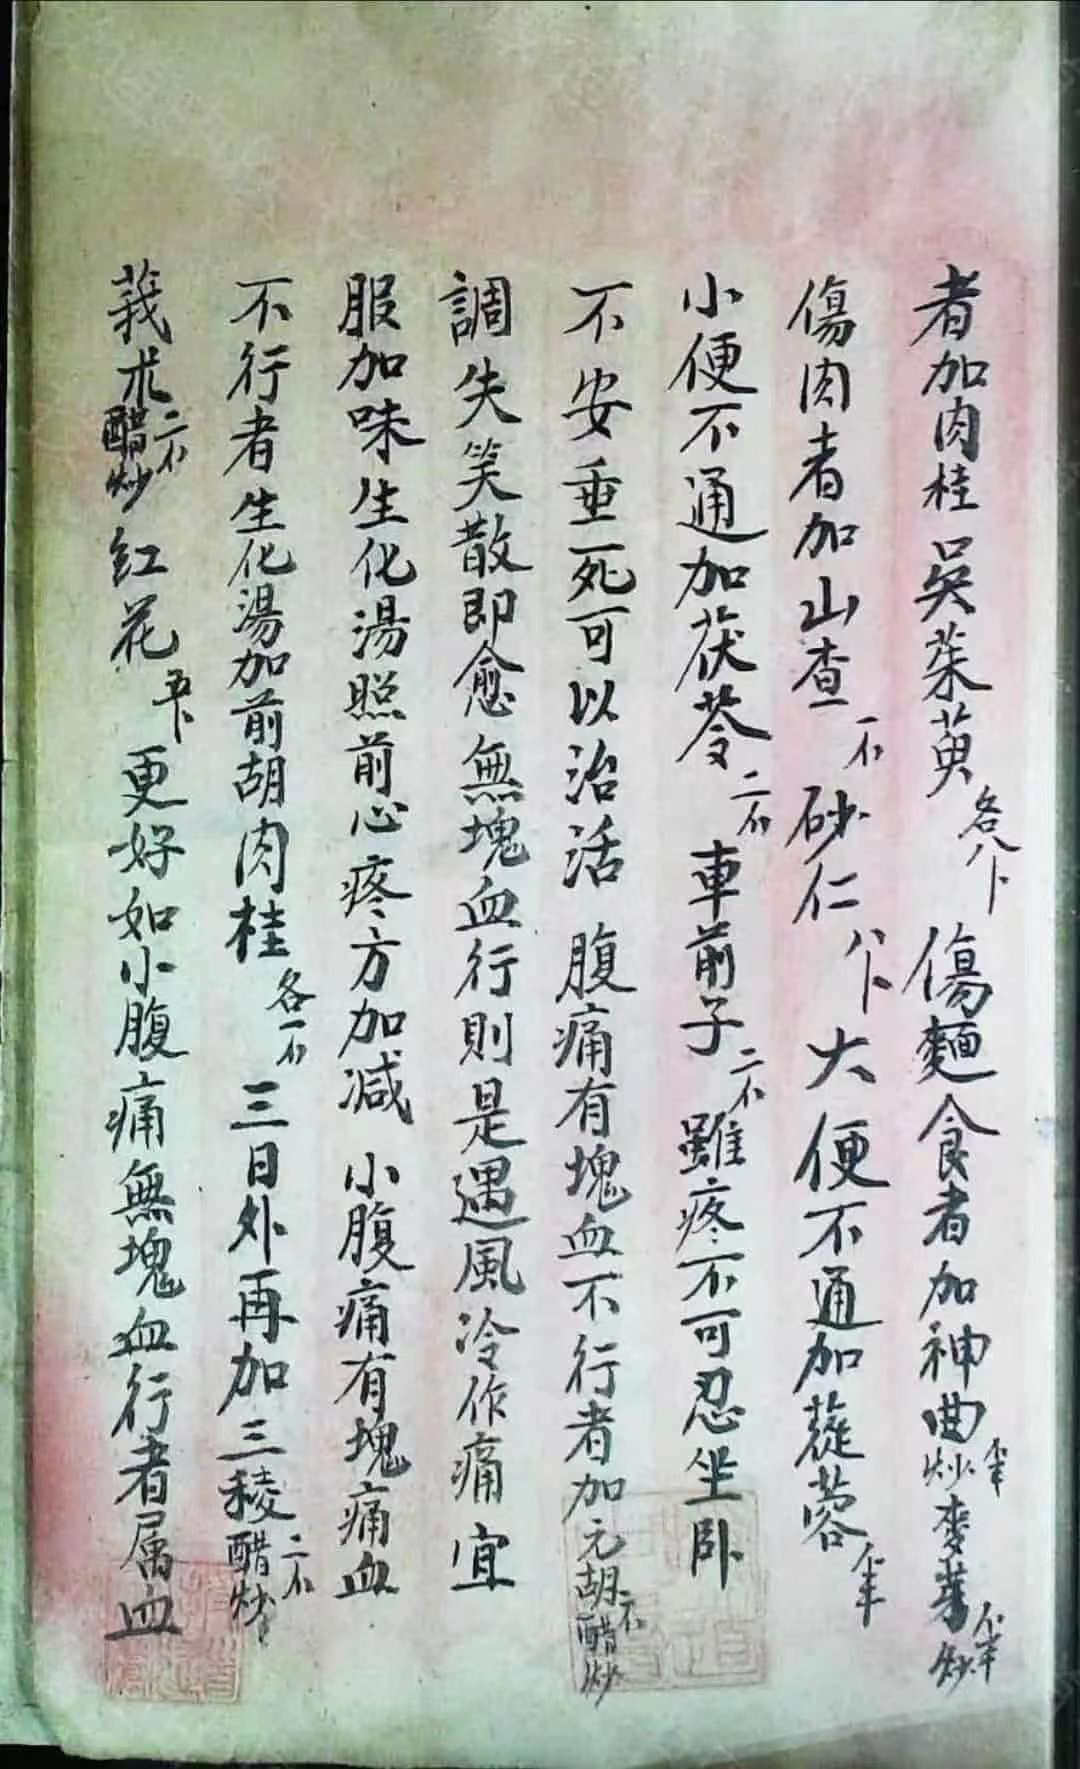 者加肉桂吳茱萸各八卜傷麵食者加神曲炒半麥芽炒半
傷肉者加山查一不砂仁八卜大便不通加蓯蓉半
小便不通加茯苓二不車前子二不雖疼不可忍坐卧
不安垂死可以治活腹痛有塊血不行者加元胡不醋炒
調失笑散即愈無塊血行則是遇風冷作痛宜
服加味生化湯照前心疼方加减小腹痛有塊痛血
不行者生化湯加前胡肉桂各一不三日外再加三稜二不醋炒
莪朮二不醋炒红花五卜更好如小腹痛無塊血行者属血